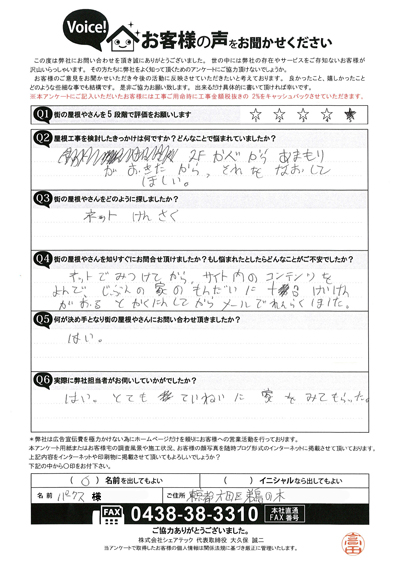 Voice!
お客様の声をお聞かせください
この度は弊社にお問い合わせを頂き誠にありがとうございました。 世の中には弊社の存在やサービスをご存知ないお客様が
沢山いらっしゃいます。 その方たちに弊社をよく知って頂くためのアンケートにご協力頂けないでしょうか。
お客様のご意見をお聞かせいただき今後の活動に反映させていただきたいと考えております。 良かったこと、嬉しかったこと
どのような些細な事でも結構です。 是非ご協力お願い致します。 出来るだけ具体的に書いて頂ければ幸いです。
※本アンケートにご記入いただいたお客様には工事ご用命時に工事金額税抜きの 2%をキャッシュバックさせていただきます。
Q1 街の屋根やさんを5段階で評価をお願いします ☆ ☆ ☆ ☆ ★
Q2 屋根工事を検討したきっかけは何ですか？どんなことで悩まれていましたか？
2F かべから あまもり
がおきたから、それを なおして
ほしい。
Q3 街の屋根やさんをどのように探しましたか？
ネット けんさく
Q4 街の屋根やさんを知りすぐにお問合せ頂けましたか？もし悩まれたとしたらどんなことがご不安でしたか？
ネットでみつけてから、サイト内のコンテンツを
よんで じぶんの家のもんだいに
けいけん
がある とかくにんしてから メールでれんらくしました。
Q5 何が決め手となり街の屋根やさんにお問い合わせ頂きましたか？
はい。
Q6 実際に弊社担当者がお伺いしていかがでしたか？
はい。とても ていねいに 家をみてもらった。
＊弊社は広告宣伝費を極力かけない為にホームページだけを頼りにお客様への営業活動を行っております。
本アンケート用紙またはお客様宅の調査風景や施工状況、お客様の顔写真を随時ブログ形式のインターネットに掲載させて頂いております。
上記内容をインターネットや印刷物に掲載させて頂いてもよろしいでしょうか？
下記の中から〇印をお付下さい。
（ 〇 ）名前を出してもよい （ ）イニシャルなら出してもよい
名前 パクス 様 ご住所 東京都大田区鵜の木
FAX 0438-38-3310 本社直通 FAX番号
ご協力ありがとうございました。
株式会社シェアテック 代表取締役 大久保 誠二
当アンケートで取得したお客様の個人情報は関係法規に基づき厳正に管理いたします。